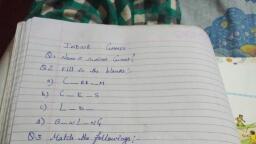 Indoor Games
Q1 Name 5 indoor Games?
Q2 Fill in the blanks:-
a) C _ RR _ M
b) C _ E _ S
c) L _ D _
d) B _ W L _ N G
Q3 Match the followings:-